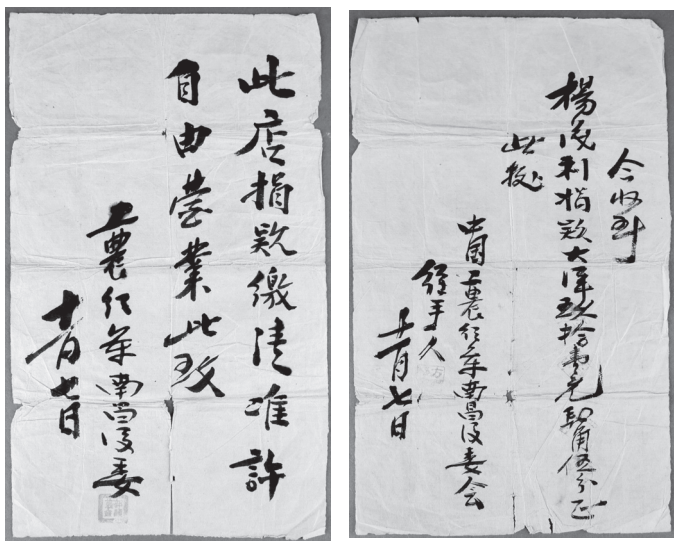 此店捐款繳清准許
自由營業此致
工農紅軍南昌委
十一月七日
今收到
楊利捐款大洋玖拾壹元角伍分正
此據
中国工農紅軍南昌委会
經手人
十一月七日